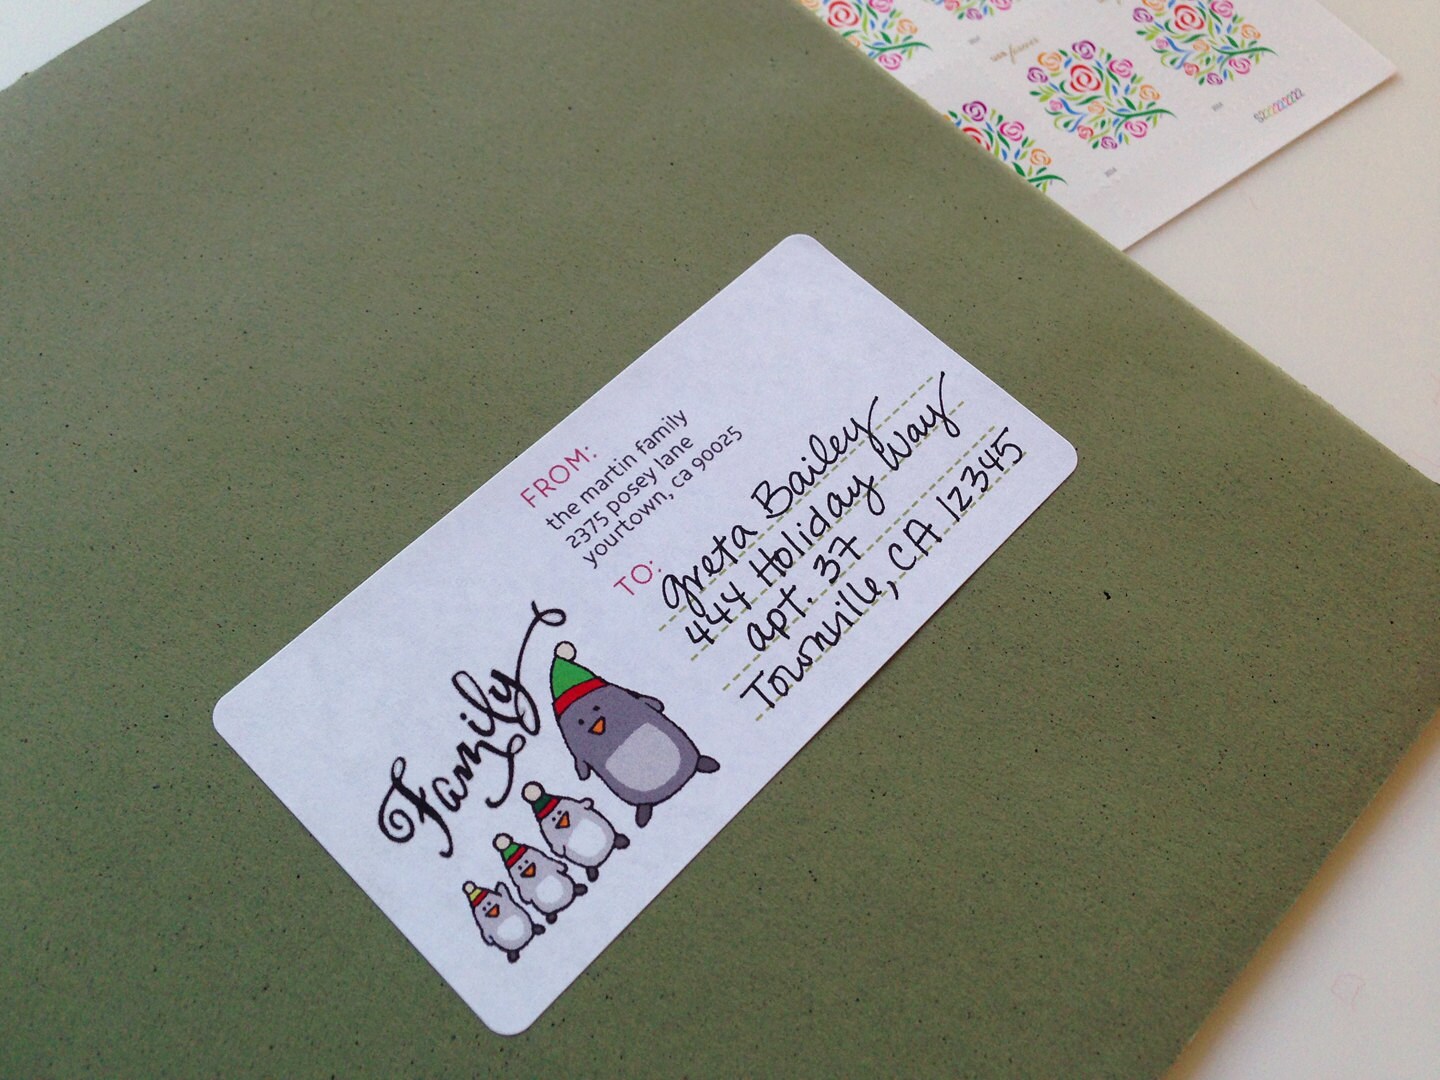 FROM:
the martin family
2375 posey lane
yourtown, ca 90025
TO:
Greta Bailey
444 Holiday Way
apt. 37
Townville, CA 12345
Family